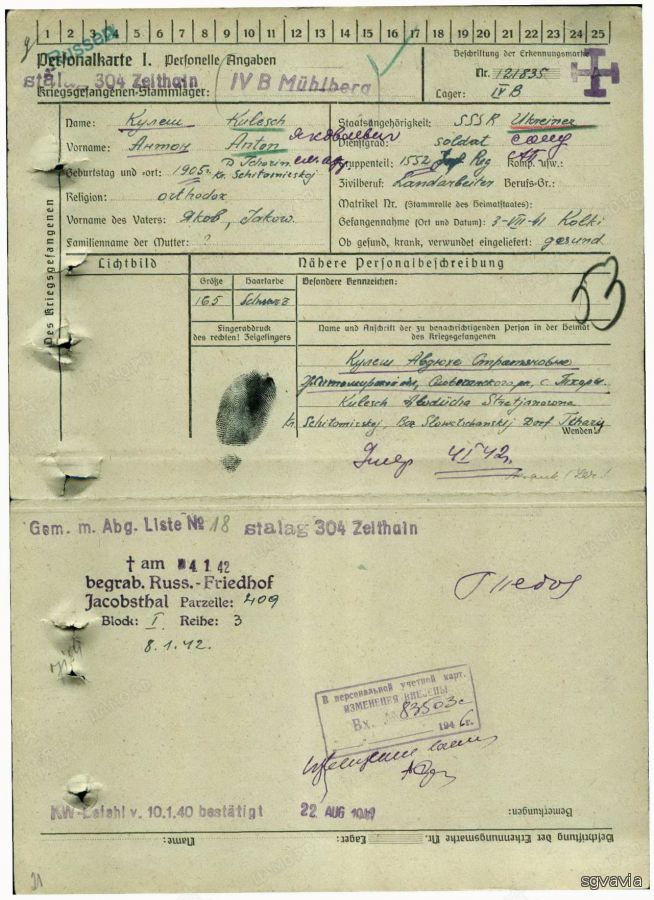 1 2 3 4 5 6 7 8 9 10 11 12 13 14 15 16 17 18 19 20 21 22 23 24 25
Russen
Personalkarte I. Personelle Angaben
Beschriftung der Erkennungsmarke
Nr. 121835
stalag 304 Zeithain
IV B Mühlberg
Kriegsgefangenen-Stammlager:
Lager: IV B
Des Kriegsgefangenen
Name: Кулеш Kulesch
Staatsangehörigkeit: SSSR Ukrainer
Vorname: Антон Anton Яковлевич
Dienstgrad: soldat
Geburtstag und -ort: 1905
Truppenteil: 1552 Inf Reg Komp. usw.:
Kr. Schitomirskoj
Zivilberuf: Landarbeiter Berufs-Gr.:
Religion: orthodox
Matrikel Nr. (Stammrolle des Heimatstaates):
Vorname des Vaters: Якоб, Jakow.
Gefangennahme (Ort und Datum): 3-VII-41 Kolki
Familienname der Mutter: ?
Ob gesund, krank, verwundet eingeliefert: gesund
Lichtbild
Nähere Personalbeschreibung
Größe Haarfarbe Besondere Kennzeichen:
165 Schwarz
53
Fingerabdruck
des rechten! Zeigefingers
Name und Anschrift der zu benachrichtigenden Person in der Heimat
des Kriegsgefangenen
Кулеш Авдюха Стратяновно
Kulesch Awdiucha Stratjanowna
Kr. Schitomirskoj, Slowetschanskej Dorf
Wenden!
Умер 4 I 42г.
Gem. m. Abg. Liste № 18 stalag 304 Zeithain
† am 4.1.42
begrab. Russ.-Friedhof
Jacobsthal Parzelle: 409
Block: I Reihe: 3
8.1.42.
В персональной учетной карт.
ИЗМЕНЕНИЯ ВНЕСЕНЫ
Вх. № 83503с
194 6 г.
KW-Befehl v. 10.1.40 bestätigt
22 AUG 1941
Bemerkungen:
Beschriftung der Erkennungsmarke Nr. Lager:
Name:
sgvavia